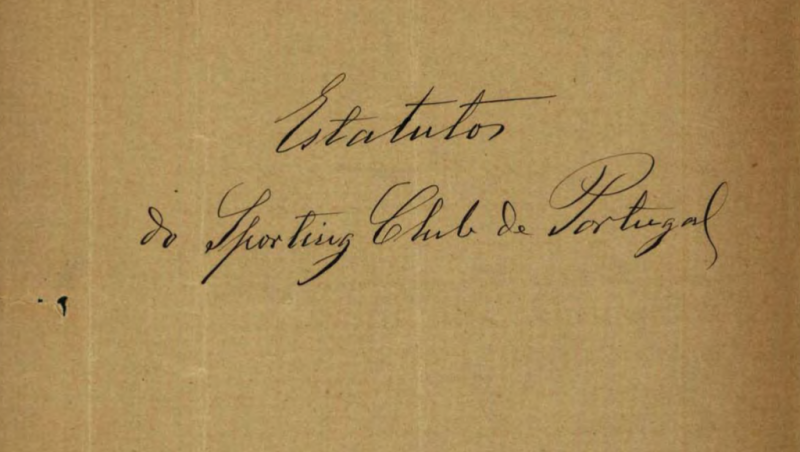 Estatutos
do Sporting Club de Portugal